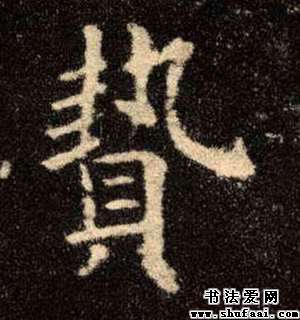 贄
书法爱网
www.shufaai.com